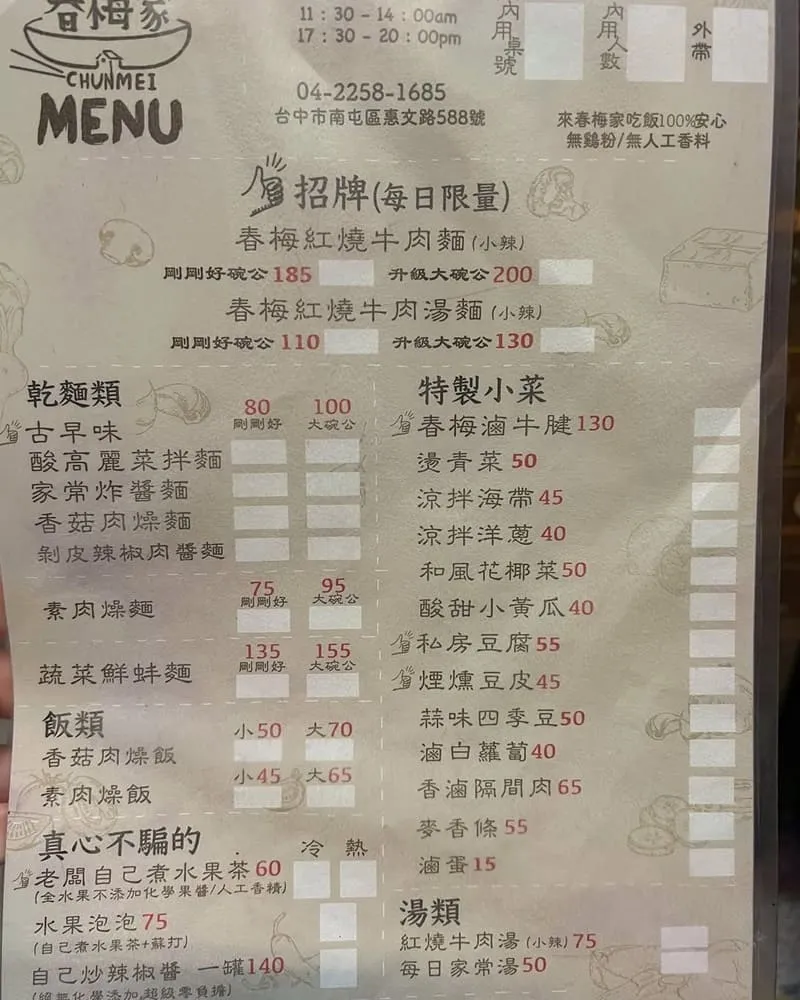 春梅家
CHUNMEI
MENU
11：30 - 14：00am
17：30 - 20：00pm
內用桌號
內用人數
外帶
04-2258-1685
台中市南屯區惠文路588號
來春梅家吃飯100%安心
無鷄粉/無人工香料
招牌(每日限量)
春梅紅燒牛肉麵(小辣)
剛剛好碗公185 升級大碗公200
春梅紅燒牛肉湯麵(小辣)
剛剛好碗公110 升級大碗公130
乾麵類
80 100
剛剛好 大碗公
古早味
酸高麗菜拌麵
家常炸醬麵
香菇肉燥麵
剝皮辣椒肉醬麵
75 95
剛剛好 大碗公
素肉燥麵
135 155
剛剛好 大碗公
蔬菜鮮蚌麵
飯類 小50 大70
香菇肉燥飯
小45 大65
素肉燥飯
真心不騙的 冷 熱
老闆自己煮水果茶60
(全水果不添加化學果醬/人工香精)
水果泡泡75
(自己煮水果茶+蘇打)
自己炒辣椒醬 一罐140
(絕無化學添加,超級零負擔)
特製小菜
春梅滷牛腱130
燙青菜50
涼拌海帶45
涼拌洋蔥40
和風花椰菜50
酸甜小黃瓜40
私房豆腐55
煙燻豆皮45
蒜味四季豆50
滷白蘿蔔40
香滷隔間肉65
麥香條55
滷蛋15
湯類
紅燒牛肉湯(小辣)75
每日家常湯50